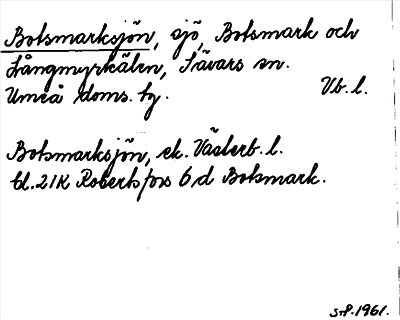 Botsmarksjön, sjö, Botsmark och
Långmyrkälen, Sävars sn.
Umeå doms. tg. Vb. l.
Botsmarksjön, ek. Västerb. l.
bl. 21K Robertsfors 6 d Botsmark.
S+P. 1961.